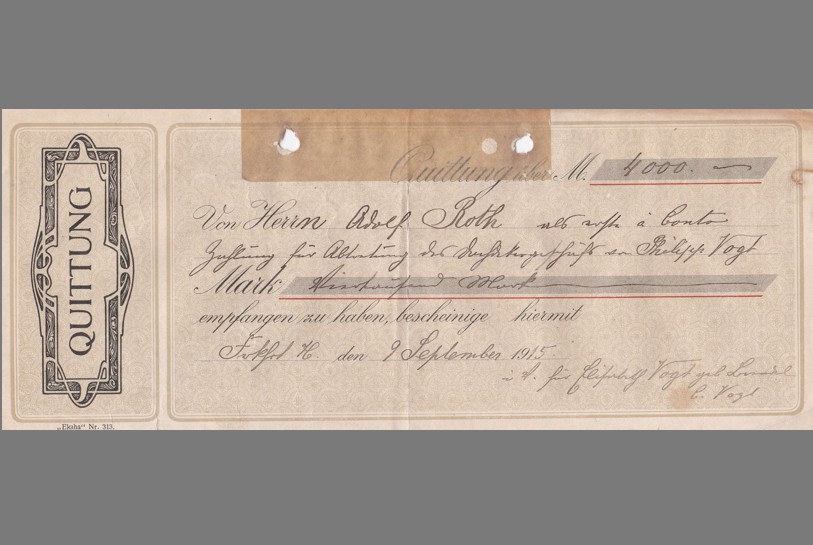 QUITTUNG
Quittung über M. 4000.
Von Herrn Adolf Roth als erste à Conto
Zahlung für Abtretung des Dachdeckergeschäfts an Philipp Vogt
Mark Viertausend Mark
empfangen zu haben, bescheinige hiermit
Fkfrt den 9 September 1915
für Elisabeth Vogt geb
C. Vogt
„Ekaha" Nr. 313.